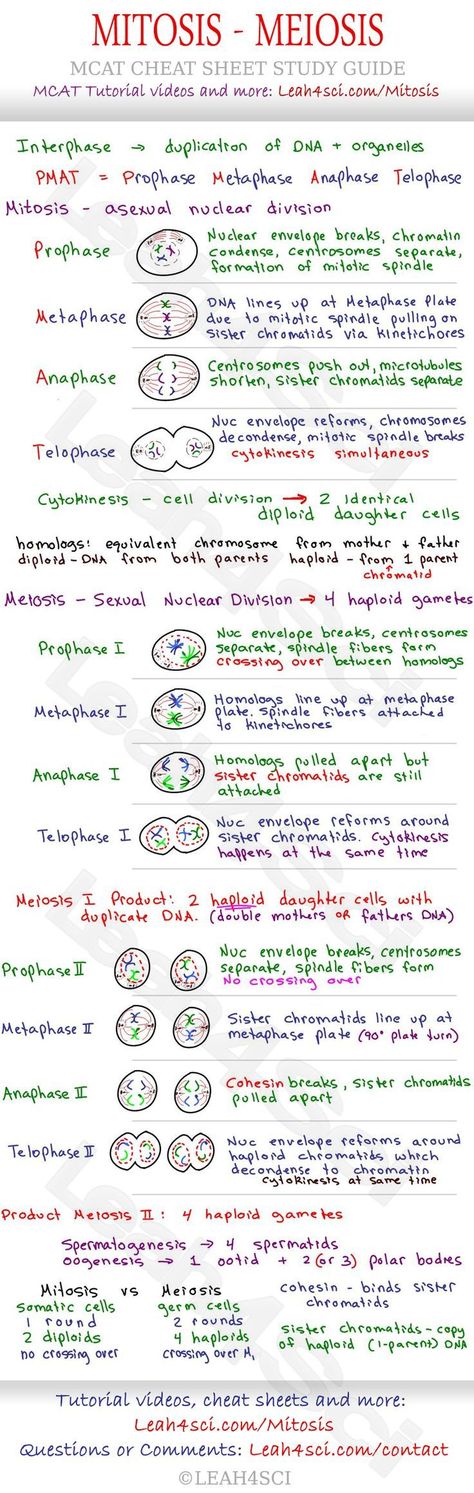 MITOSIS - MEIOSIS
MCAT CHEAT SHEET STUDY GUIDE
MCAT Tutorial videos and more: Leah4sci.com/Mitosis
Interphase → duplication of DNA + organelles
PMAT = Prophase Metaphase Anaphase Telophase
Mitosis - asexual nuclear division
Prophase
Nuclear envelope breaks, chromatin
condense, centrosomes separate,
formation of mitotic spindle
Metaphase
DNA lines up at Metaphase Plate
due to mitotic spindle pulling on
sister chromatids via kinetichores
Anaphase
Centrosomes push out, microtubules
shorten, sister chromatids separate
Telophase
Nuc envelope reforms, chromosomes
decondense, mitotic spindle breaks
cytokinesis simultaneous
Cytokinesis - cell division → 2 identical
diploid daughter cells
homologs: equivalent chromosome from mother + father
diploid - DNA from both parents haploid - from 1 parent
chromatid
Meiosis - Sexual Nuclear Division → 4 haploid gametes
Prophase I
Nuc envelope breaks, centrosomes
separate, spindle fibers form
crossing over between homologs
Metaphase I
Homologs line up at metaphase
plate. Spindle fibers attached
to kinetichores
Anaphase I
Homologs pulled apart but
sister chromatids are still
attached
Telophase I
Nuc envelope reforms around
sister chromatids. Cytokinesis
happens at the same time
Meiosis I Product: 2 haploid daughter cells with
duplicate DNA. (double mothers OR fathers DNA)
Prophase II
Nuc envelope breaks, centrosomes
separate, spindle fibers form
No crossing over
Metaphase II
Sister chromatids line up at
metaphase plate (90° plate turn)
Anaphase II
Cohesin breaks, sister chromatids
pulled apart
Telophase II
Nuc envelope reforms around
haploid chromatids which
decondense to chromatin
cytokinesis at same time
Product Meiosis II: 4 haploid gametes
Spermatogenesis → 4 spermatids
oogenesis → 1 ootid + 2 (or 3) polar bodies
Mitosis vs Meiosis
somatic cells germ cells
1 round 2 rounds
2 diploids 4 haploids
no crossing over crossing over M1
cohesin - binds sister
chromatids
sister chromatids - copy
of haploid (1-parent) DNA
Tutorial videos, cheat sheets and more:
Leah4sci.com/Mitosis
Questions or Comments: Leah4sci.com/contact
©LEAH4SCI
Leah4Sci
Leah4Sci
Leah4Sci